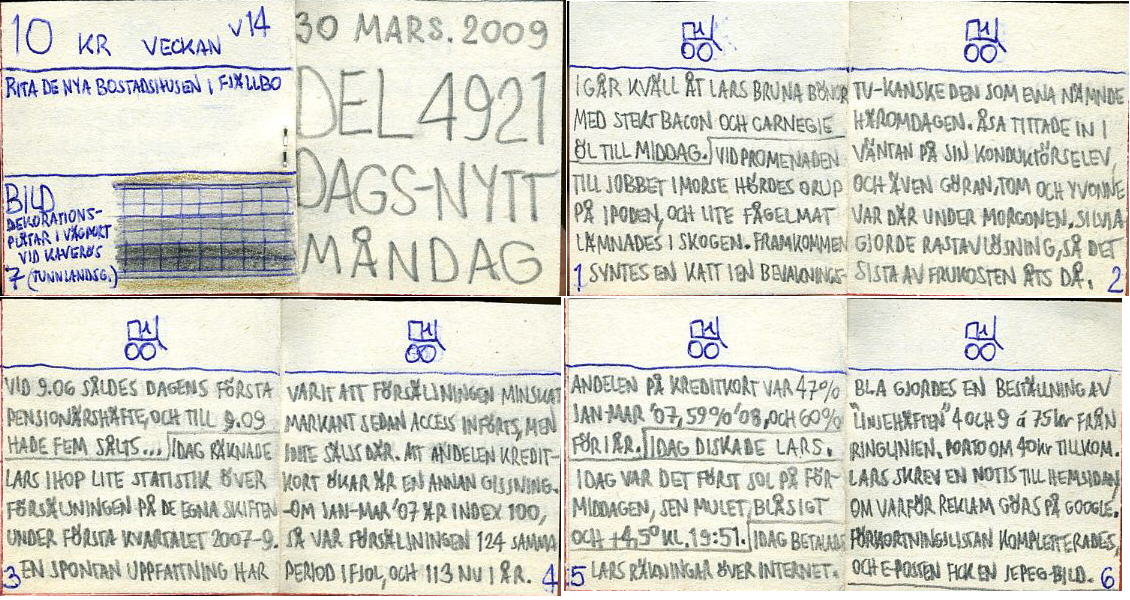 10 KR VECKAN V14
RITA DE NYA BOSTADSHUSEN I FJÄLLBO
BILD
DEKORATIONS-
PLÅTAR I VÄGPORT
VID KAVERÖS
7 (TUNNLANDSG.)
30 MARS. 2009
DEL 4921
DAGS-NYTT
MÅNDAG
IGÅR KVÄLL ÅT LARS BRUNA BÖNOR
MED STEKT BACON OCH CARNEGIE
ÖL TILL MIDDAG. VID PROMENADEN
TILL JOBBET I MORSE HÖRDES ORUP
PÅ IPODEN, OCH LITE FÅGELMAT
LÄMNADES I SKOGEN. FRAMKOMMEN
1 SYNTES EN KATT I EN BEVAKNINGS-
TV-KANSKE DEN SOM EWA NÄMNDE
HÄROMDAGEN. ÅSA TITTADE IN I
VÄNTAN PÅ SIN KONDUKTÖRSELEV,
OCH ÄVEN GÖRAN, TOM OCH YVONNE
VAR DÄR UNDER MORGONEN. SILVIA
GJORDE RASTAVLÖSNING, SÅ DET
SISTA AV FRUKOSTEN ÅTS DÅ. 2
VID 9.06 SÅLDES DAGENS FÖRSTA
PENSIONÄRSHÄFTE, OCH TILL 9.09
HADE FEM SÅLTS... IDAG RÄKNADE
LARS IHOP LITE STATISTIK ÖVER
FÖRSÄLJNINGEN PÅ DE EGNA SKIFTEN
UNDER FÖRSTA KVARTALET 2007-9.
3 EN SPONTAN UPPFATTNING HAR
VARIT ATT FÖRSÄLJNINGEN MINSKAT
MARKANT SEDAN ACCESS INFÖRTS, MEN
INTE SÄLJS DÄR. ATT ANDELEN KREDIT-
KORT ÖKAR ÄR EN ANNAN GISSNING.
-OM JAN-MAR '07 ÄR INDEX 100,
SÅ VAR FÖRSÄLJNINGEN 124 SAMMA
PERIOD I FJOL, OCH 113 NU I ÅR. 4
ANDELEN PÅ KREDITKORT VAR 47%
JAN-MAR '07, 59% '08, OCH 60%
FÖR I ÅR. IDAG DISKADE LARS.
IDAG VAR DET FÖRST SOL PÅ FÖR-
MIDDAGEN, SEN MULET, BLÅSIGT
OCH +4,5° KL. 19:51. IDAG BETALADE
5 LARS RÄKNINGAR ÖVER INTERNET.
BLA GJORDES EN BESTÄLLNING AV
"LINJEHÄFTEN" 4 OCH 9 á 75 kr FRÅN
RINGLINIEN. PORTO OM 40 kr TILLKOM.
LARS SKREV EN NOTIS TILL HEMSIDAN,
OM VARFÖR REKLAM GÖRS PÅ GOOGLE.
FÖRKORTNINGSLISTAN KOMPLETTERADES,
OCH E-POSTEN FICK EN JEPEG-BILD. 6